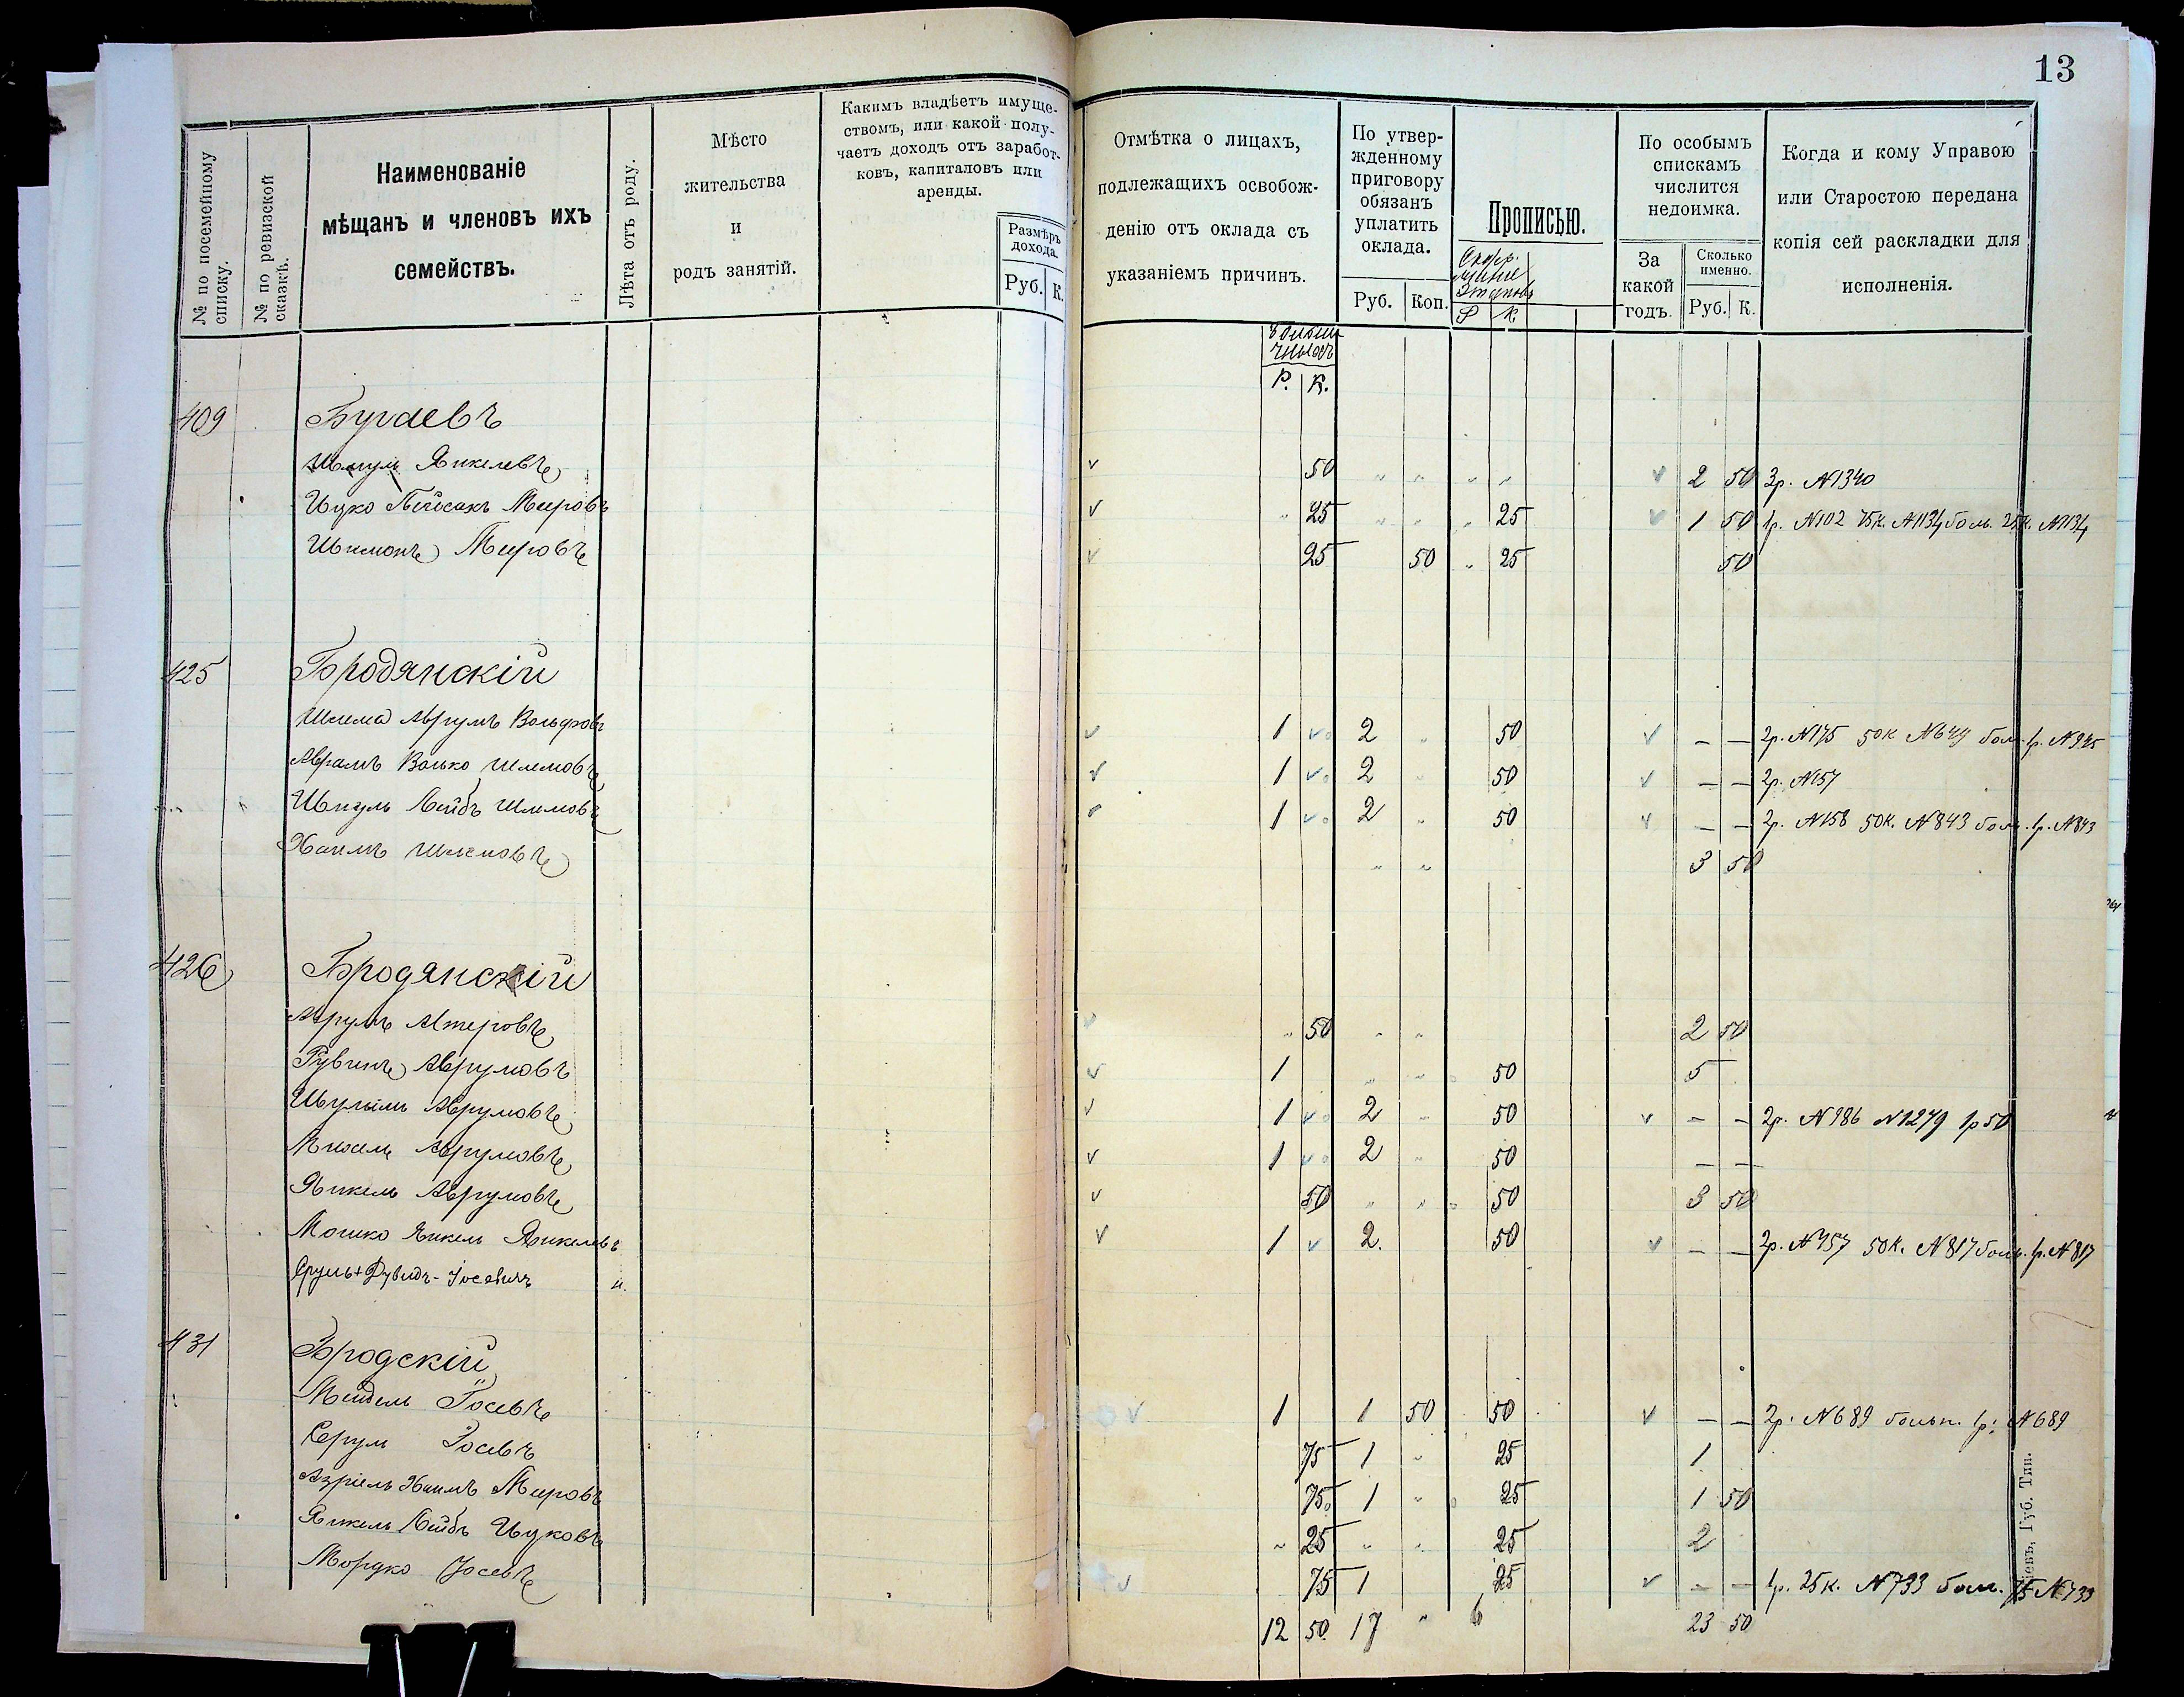 13
№ по посемейному списку.
№ по ревизской сказкѣ.
Наименованіе
мѣщанъ и членовъ ихъ
семействъ.
Лѣта отъ роду.
Мѣсто
жительства
и
родъ занятій.
Какимъ владѣетъ имуще-
ствомъ, или какой полу-
чаетъ доходъ отъ заработ-
ковъ, капиталовъ или
аренды.
Размѣръ
дохода.
Руб. К.
Отмѣтка о лицахъ,
подлежащихъ освобож-
денію отъ оклада съ
указаніемъ причинъ.
По утвер-
жденному
приговору
обязанъ
уплатить
оклада.
Руб. Коп.
Прописью.
Р К
По особымъ
спискамъ
числится
недоимка.
За
какой
годъ.
Сколько
именно.
Руб. К.
Когда и кому Управою
или Старостою передана
копія сей раскладки для
исполненія.
Р. К.
409 Бугаевъ
Шмуль Янкелевъ 50 2 50 3р. №1340
Ицко Пейсахъ Мееровъ 25 25 1 50 1р. №102 75к. №1134 боль. 25к. №1134
Шимонъ Мееровъ 25 50 25 50
425 Бродянскій
Шлема Аврумъ Вольфовъ 1 2 50 — — 2р. №175 50к №649 бол. 1р. №945
Аврамъ Волько Шлемовъ 1 2 50 — — 2р. №157
Шмуль Лейбъ Шлемовъ 1 2 50 — — 2р. №158 50к. №843 бол. 1р. №843
Хаимъ Шлемовъ 3 50
426 Бродянскій
Аврумъ Алтеровъ 50 2 50
Рувинъ Аврумовъ 1 50 5
Шулимъ Аврумовъ 1 2 50 — — 2р. №986 №1279 1р 50
Аврумовъ 1 2 50 — —
Янкель Аврумовъ 50 50 3 50
Мошко Янкель Янкелевъ 1 2. 50 — — 2р. №957 50к. №817 боль. 1р. №817
Сруль Дувидъ-Іосевичъ
431 Бродскій
Мендель Іосевъ 1 1 50 50 — — 2р. №689 больн. 1р. №689
Сруль Іосевъ 75 1 25 1
Азріель Хаимъ Мееровъ 75 1 25 1 50
Янкель Лейбъ Ицковъ 25 25 2
Мордко Іосевъ 75 1 25 — — 1р. 25к. №733 бол. 75 №733
12 50 17 " 6 23 50
Кіевъ, Губ. Тип.